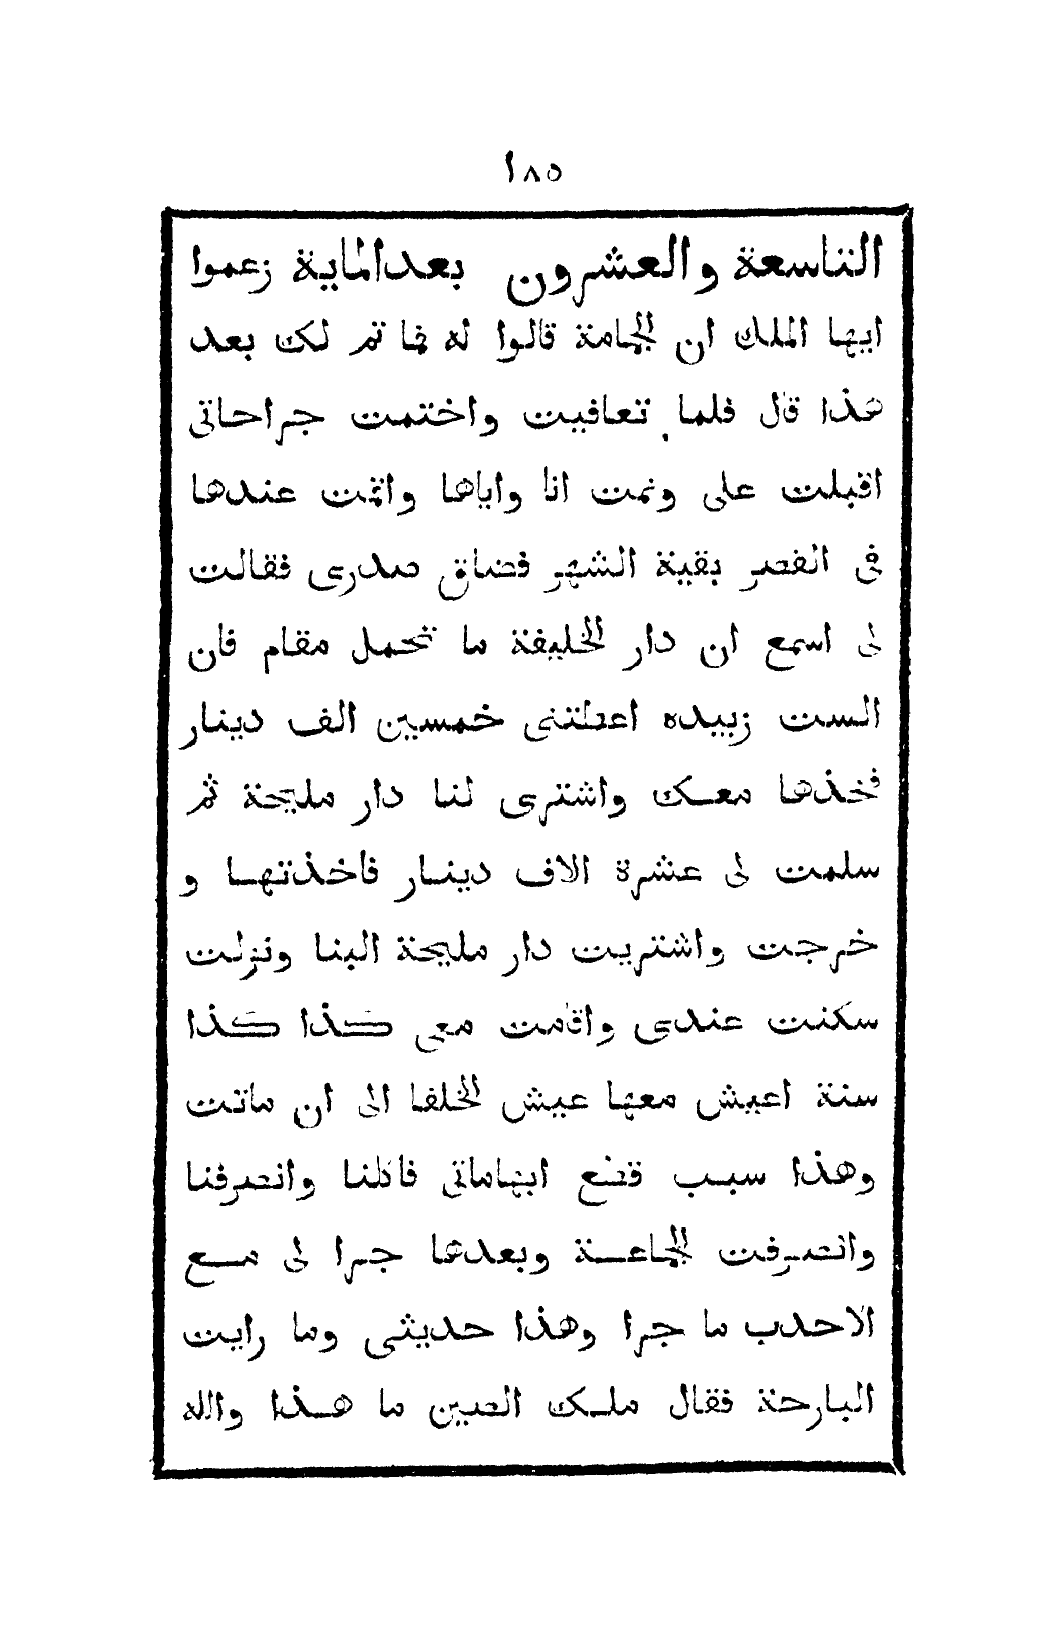 ١٨٥
التاسعة والعشرون بعد الماية زعموا
ايها الملك ان الجماعة قالوا له فما تم لك بعد
هذا قال فلما تعافيت واختمت جراحاتى
اقبلت على ونمت انا واياها واقمت عندها
فى القصر بقية الشهر فضاق صدرى فقالت
لى اسمع ان دار الخليفة ما تحمل مقام فان
الست زبيده اعطتنى خمسين الف دينار
فخذها معك واشترى لنا دار مليحة ثم
سلمت لى عشرة الاف دينار فاخذتها و
خرجت واشتريت دار مليحة البنا ونزلت
سكنت عندى واقامت معى كذا كذا
سنة اعيش معها عيش الخلفا الى ان ماتت
وهذا سبب قطع ابهاماتى فاكلنا وانصرفنا
وانصرفت الجماعة وبعدها جرا لى مع
الاحدب ما جرا وهذا حديثى وما رايت
البارحة فقال ملك الصين ما هذا والله